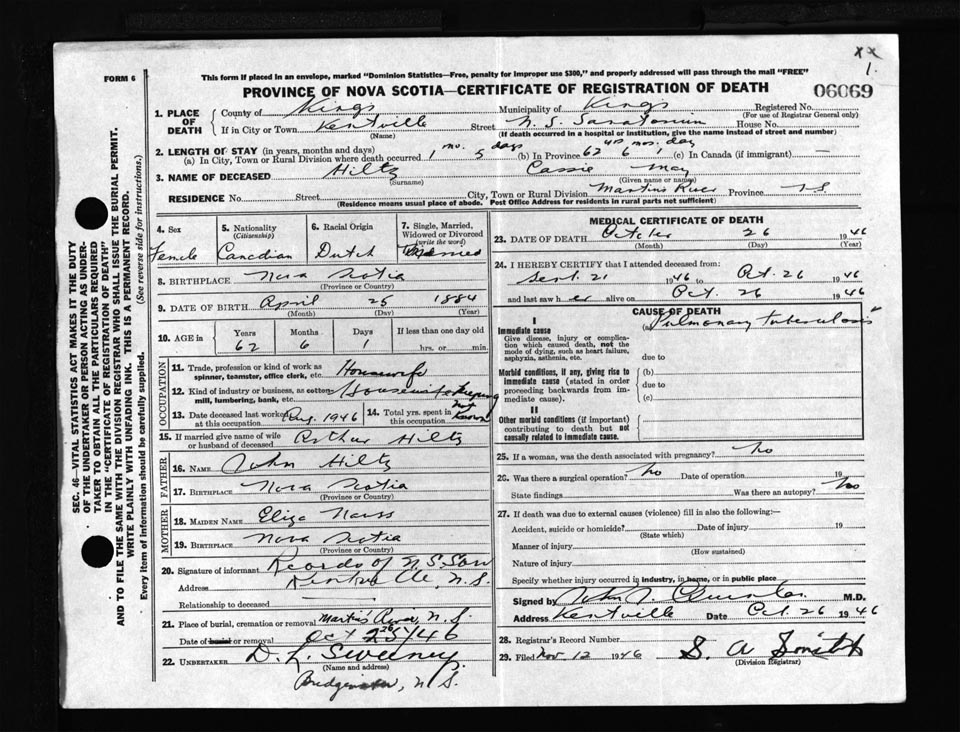 xx
1.
FORM 6
This form if placed in an envelope, marked "Dominion Statistics—Free, penalty for improper use $300," and properly addressed will pass through the mail "FREE"
PROVINCE OF NOVA SCOTIA—CERTIFICATE OF REGISTRATION OF DEATH
06069
SEC. 46—VITAL STATISTICS ACT MAKES IT THE DUTY
OF THE UNDERTAKER OR PERSON ACTING AS UNDER-
TAKER TO OBTAIN ALL THE PARTICULARS REQUIRED
IN THE "CERTIFICATE OF REGISTRATION OF DEATH"
AND TO FILE THE SAME WITH THE DIVISION REGISTRAR WHO SHALL ISSUE THE BURIAL PERMIT.
WRITE PLAINLY WITH UNFADING INK. THIS IS A PERMANENT RECORD.
Every item of information should be carefully supplied. (See reverse side for instructions.)
1. PLACE OF DEATH
County of Kings Municipality of Kings Registered No.
(For use of Registrar General only)
If in City or Town Kentville Street N. S. Sanatorium House No.
(Name) (If death occurred in a hospital or institution, give the name instead of street and number)
2. LENGTH OF STAY (in years, months and days)
(a) In City, Town or Rural Division where death occurred 1 mo. 5 days (b) In Province 62 yrs 6 mos. 1 day (c) In Canada (if immigrant) —
3. NAME OF DECEASED Hiltz Cassie May
(Surname) (Given name or names)
RESIDENCE No. Street City, Town or Rural Division Martins River Province N S
(Residence means usual place of abode. Post Office Address for residents in rural parts not sufficient)
4. Sex
Female
5. Nationality
(Citizenship)
Canadian
6. Racial Origin
Dutch
7. Single, Married, Widowed or Divorced
(write the word)
Married
8. BIRTHPLACE Nova Scotia
(Province or Country)
9. DATE OF BIRTH April 25 1884
(Month) (Day) (Year)
10. AGE in
Years Months Days If less than one day old
62 6 1 hrs. or min.
OCCUPATION
11. Trade, profession or kind of work as spinner, teamster, office clerk, etc. Housewife
12. Kind of industry or business, as cotton mill, lumbering, bank, etc. Housekeeping
13. Date deceased last worked at this occupation Aug. 1946
14. Total yrs. spent in this occupation not known
15. If married give name of wife or husband of deceased Arthur Hiltz
FATHER
16. NAME John Hiltz
17. BIRTHPLACE Nova Scotia
(Province or Country)
MOTHER
18. MAIDEN NAME Eliza Nauss
19. BIRTHPLACE Nova Scotia
(Province or Country)
20. Signature of informant Records of N. S. San
Address Kentville, N. S.
Relationship to deceased —
21. Place of burial, cremation or removal Martins River, N. S.
Date of burial or removal Oct 28/46
22. UNDERTAKER D. L. Sweeney
(Name and address)
Bridgewater, N. S.
MEDICAL CERTIFICATE OF DEATH
23. DATE OF DEATH October 26 1946
(Month) (Day) (Year)
24. I HEREBY CERTIFY that I attended deceased from:
Sept. 21 1946 to Oct. 26 1946
and last saw her alive on Oct. 26 1946
CAUSE OF DEATH
I
Immediate cause (a) Pulmonary tuberculosis
Give disease, injury or complica-
tion which caused death, not the
mode of dying, such as heart failure,
asphyxia, asthenia, etc. due to
Morbid conditions, if any, giving rise to (b)
immediate cause (stated in order due to
proceeding backwards from im-
mediate cause). (c)
II
Other morbid conditions (if important)
contributing to death but not
causally related to immediate cause.
25. If a woman, was the death associated with pregnancy? No
26. Was there a surgical operation? No Date of operation 19
State findings Was there an autopsy? No
27. If death was due to external causes (violence) fill in also the following:—
Accident, suicide or homicide? Date of injury 19
(State which)
Manner of injury
(How sustained)
Nature of injury
Specify whether injury occurred in industry, in home, or in public place
Signed by John M.D.
Address Kentville Date Oct. 26 1946
28. Registrar's Record Number
29. Filed Nov. 12 1946 S. A. Smith
(Division Registrar)